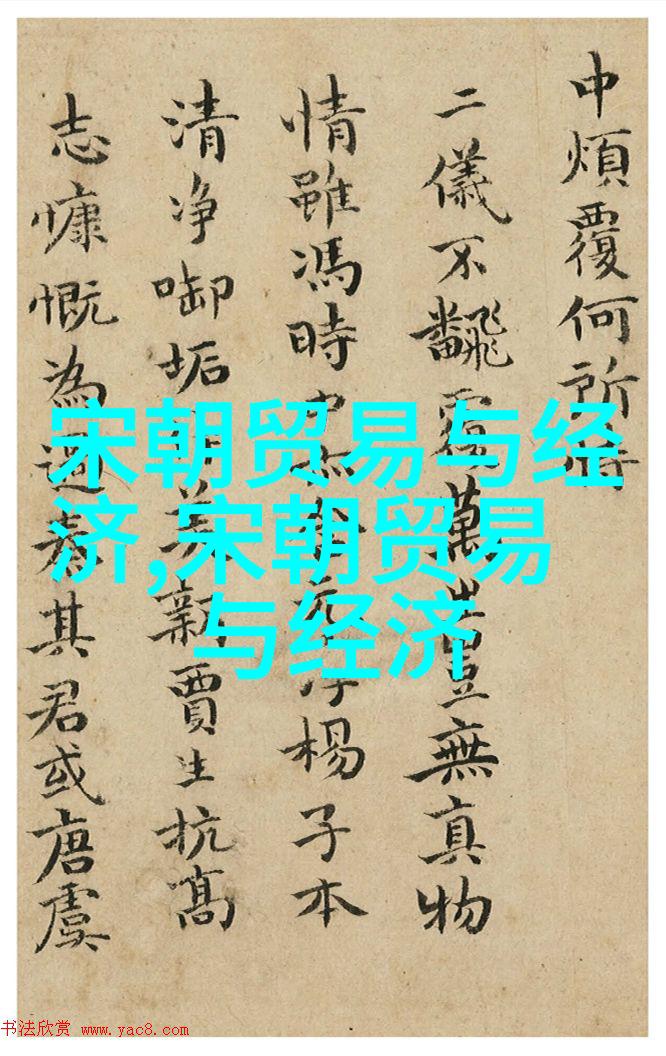 中煩覆何所
二儀不飜覆萬世豈無真物
情雖馮時楊子本
清净啣垢美新賈生抗髙
志慷慨為過秦其君或唐虞
宋朝贸易与经
济,宋朝贸易
与经济
书法欣赏 www.yac8.com